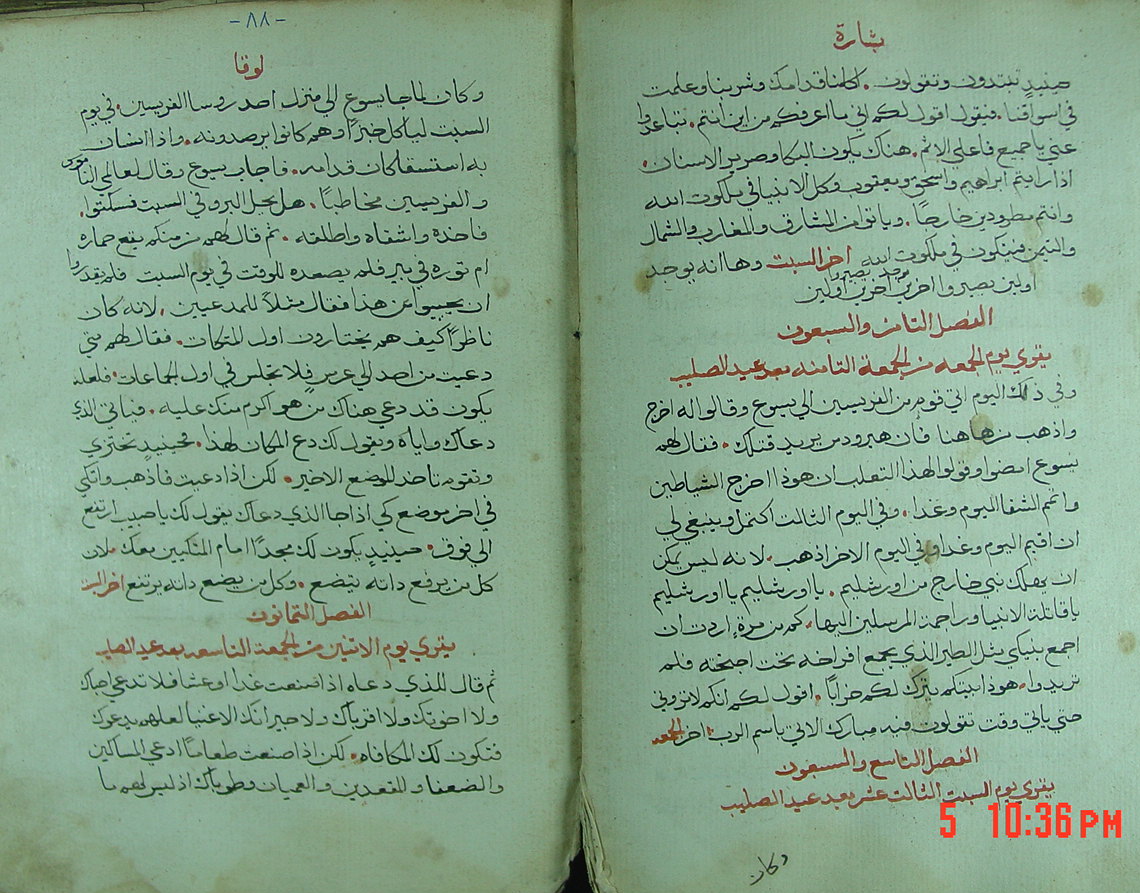 بشارة
حينيدٍ تبتدون وتقولون. اكلنا قدامك وشربنا وعلمت
في اسواقنا. فيقول اقول لكم اني ما اعرفكم من اين انتم. تباعدوا
عني يا جميع فاعلي الاثم. هناك يكون البكا وصرير الاسنان.
اذا رايتم ابراهيم واسحق ويعقوب وكل الانبيا في ملكوت الله
وانتم مطرودين خارجًا. وياتون من المشارق والمغارب والشمال
والتيمن فيتكون في ملكوت الله اخر السبت وها انه يوجد
اولين يصيروا اخرين ويوجد اخرين يصيروا اولين
الفصل الثامن والسبعون
يقري يوم الجمعه من الجمعة الثامنه بعد عيد الصليب
وفي ذلك اليوم اتي قوم من الفريسين الي يسوع وقالوا له اخرج
واذهب من هاهنا فان هيرودس يريد قتلك. فقال لهم
يسوع امضوا وقولوا لهذا الثعلب ان هوذا اخرج الشياطين
واتمم الشفا اليوم وغدا. وفي اليوم الثالت اكتمل وينبغي لي
ان اقيم اليوم وغدا وفي اليوم الاخر اذهب. لانه ليس يمكن
ان يهلك نبي خارج من اورشليم. يا اورشليم يا اورشليم
يا قاتلة الانبيا وراجمة المرسلين اليها. كم من مرة اردت ان
اجمع بنيكي مثل الطير الذي يجمع افراخه تحت اجنحته فلم
تريدوا. هوذا بيتكم يترك لكم خرابًا. اقول لكم انكم لا تروني
حتي ياتي وقت تقولون فيه مبارك الاتي باسم الرب. اخر الجمعه
الفصل التاسع والسبعون
يقري يوم السبت الثالت عشر بعد عيد الصليب
وكان
-٨٨-
لوقا
وكان لما جا يسوع الي منزل احد روسا الفريسين. في يوم
السبت لياكل خبزًا وهم كانوا يرصدونه. واذا انسان
به استسقا كان قدامه. فاجاب يسوع وقال لعالمي الناموس
والفريسيين مخاطبًا. هل يحل البرو في السبت فسكتوا.
فاخده واشفاه واطلقه. ثم قال لهم من منكم يقع حماره
ام توره في بير فلم يصعده للوقت في يوم السبت فلم يقدروا
ان يجيبوا عن هذا فقال مثلاً للمدعيين. لانه كان
ناظرًا كيف هم يختارون اول المتكات. فقال لهم متي
دعيت من احد الي عرسٍ فلا تجلس في اول الجماعات. فلعله
يكون قد دعي هناك من هو اكرم منك عليه. فياتي الذي
دعاك واياه ويقول لك دع المكان لهذا. فحينيدٍ تختزي
وتقوم تاخد للموضع الاخير. لكن اذا دعيت فاذهب واتكي
في اخر موضع كي اذا جا الذي دعاك يقول لك يا حبيب ارتفع
الي فوق. حينيدٍ يكون لك مجدًا امام المتكيين معك. لان
كل من يرفع داته يتضع. وكل من يضع داته يرتفع اخر السبت
الفصل الثمانون
يقري يوم الاتنين من الجمعة التاسعه بعد عيد الصليب
ثم قال للذي دعاه اذا صنعت غدا او عشا فلا تدعي احباك
ولا اخوتك ولا اقرباك ولا جيرانك الاغنيا لعلهم يدعوك
فتكون لك المكافاه. لكن اذا صنعت طعامًا ادعي المساكين
والضعفا والمقعدين والعميان وطوباك اذ ليس لهم ما
5 10:36 PM